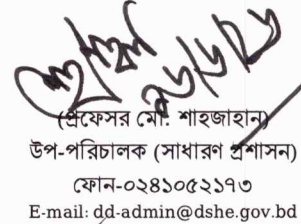 (প্রফেসর মো: শাহজাহান)
উপ-পরিচালক (সাধারণ প্রশাসন)
ফোন-০২৪১০৫২১৭৩
E-mail: dd-admin@dshe.gov.bd